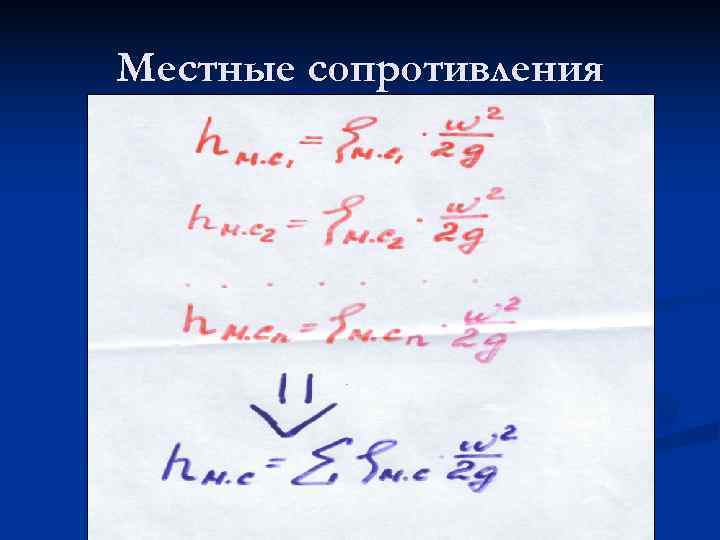 Местные сопротивления
hм.с₁ = ξм.с₁ · w²/2g
hм.с₂ = ξм.с₂ · w²/2g
. . . . . . .
hм.сn = ξм.сn · w²/2g
hм.с = Σ ξм.с · w²/2g